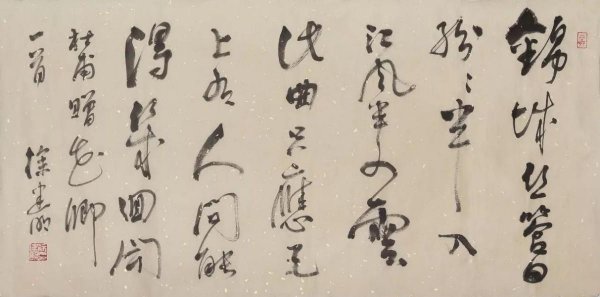 錦城丝管日
紛〻半入
江風半入雲
此曲只應天
上有人间能
得幾回闻
杜甫贈花卿
一首
徐